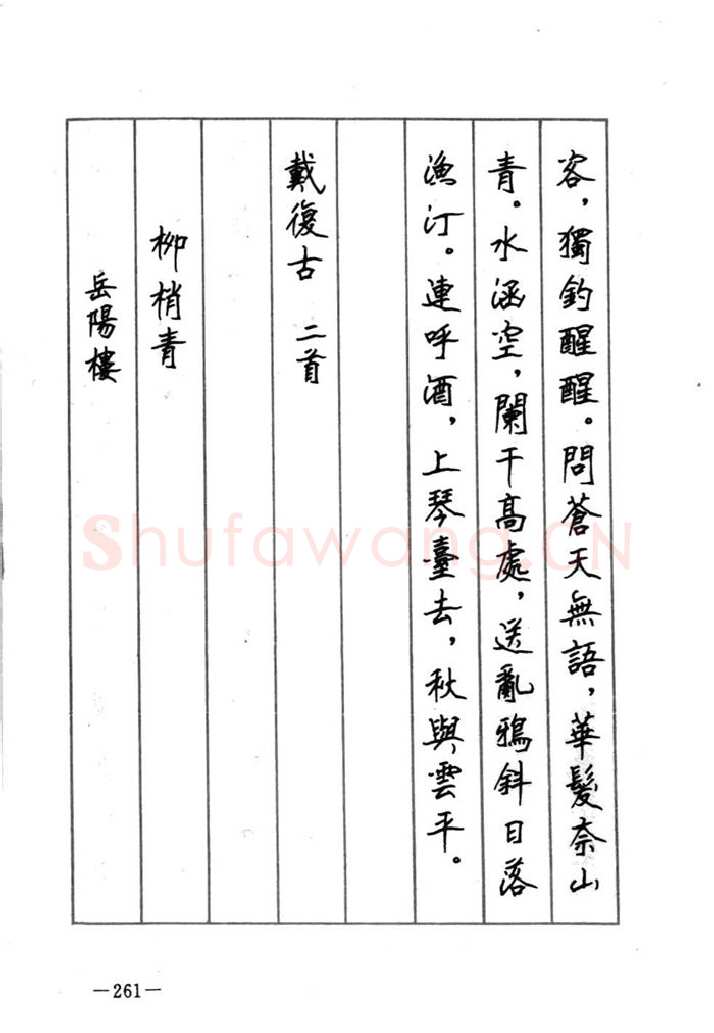 客，獨釣醒醒。問蒼天無語，華髮奈山
青。水涵空，闌干高處，送亂鴉斜日落
漁汀。連呼酒，上琴臺去，秋與雲平。
戴復古 二首
柳梢青
岳陽樓
Shufawang.CN
—261—